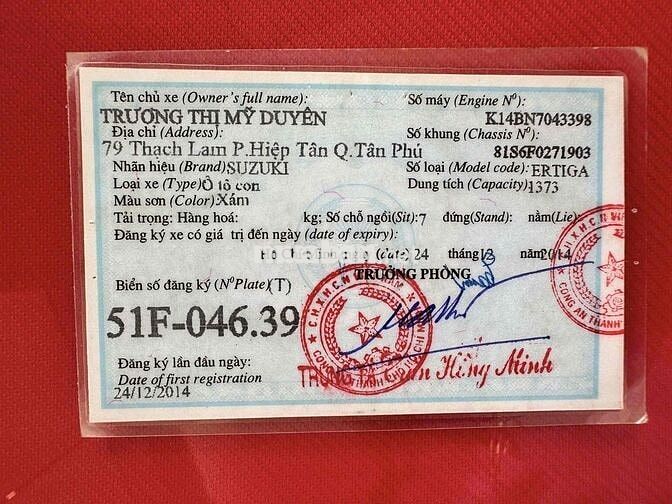 Tên chủ xe (Owner's full name):
TRƯƠNG THỊ MỸ DUYÊN
Số máy (Engine Nº):
K14BN7043398
Địa chỉ (Address):
79 Thạch Lam P.Hiệp Tân Q.Tân Phú
Số khung (Chassis Nº):
81S6F0271903
Nhãn hiệu (Brand) SUZUKI
Số loại (Model code): ERTIGA
Loại xe (Type) Ô tô con
Dung tích (Capacity) 1373
Màu sơn (Color) Xám
Tải trọng: Hàng hoá: kg; Số chỗ ngồi(Sit): 7 đứng(Stand): nằm(Lie):
Đăng ký xe có giá trị đến ngày (date of expiry):
(date) 24 tháng 12 năm 2014
TRƯỞNG PHÒNG
Biển số đăng ký (NºPlate) (T)
51F-046.39
Đăng ký lần đầu ngày:
Date of first registration
24/12/2014
Hồng Minh
C.H.X.H.C.N
CÔNG AN THÀNH